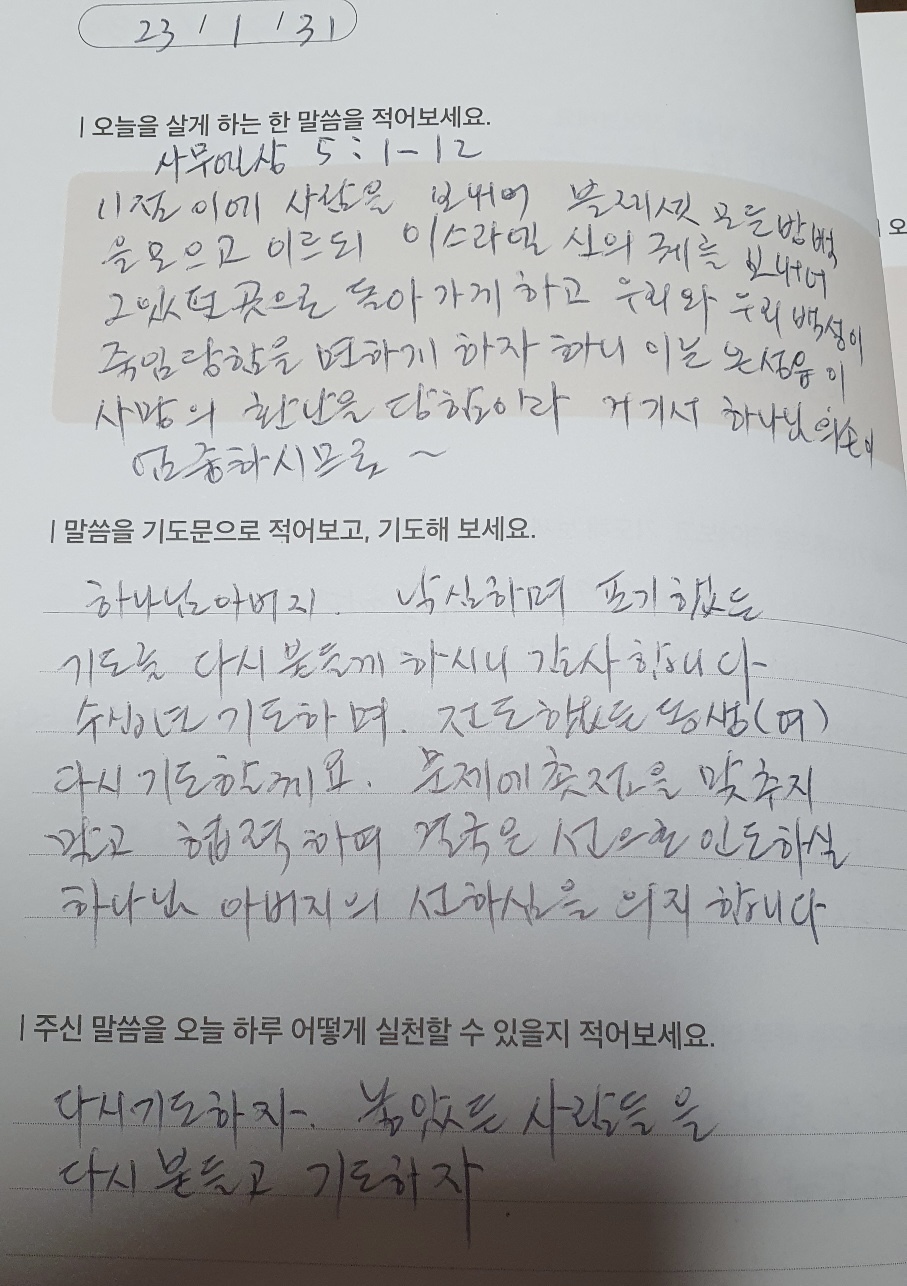 23 / 1 / 31
| 오늘을 살게 하는 한 말씀을 적어보세요.
사무엘상 5 : 1 - 12
11절 이에 사람을 보내어 블레셋 모든 방백
을 모으고 이르되 이스라엘 신의 궤를 보내어
그 있던 곳으로 돌아 가게 하고 우리와 우리 백성이
죽임 당함을 면하게 하자 하니 이는 온 성읍이
사망의 환난을 당함이라 거기서 하나님의 손이
엄중하시므로 ~
| 말씀을 기도문으로 적어보고, 기도해 보세요.
하나님 아버지. 낙심하며 포기했든
기도를 다시 붙들게 하시니 감사합니다
수십년 기도하며. 전도했든 동생(여)
다시 기도할게요. 문제에 촛점을 맞추지
않고 협력하며 결국은 선으로 인도하실
하나님 아버지의 선하심을 의지합니다
| 주신 말씀을 오늘 하루 어떻게 실천할 수 있을지 적어보세요.
다시 기도하자. 놓았든 사람들을
다시 붙들고 기도하자.
오